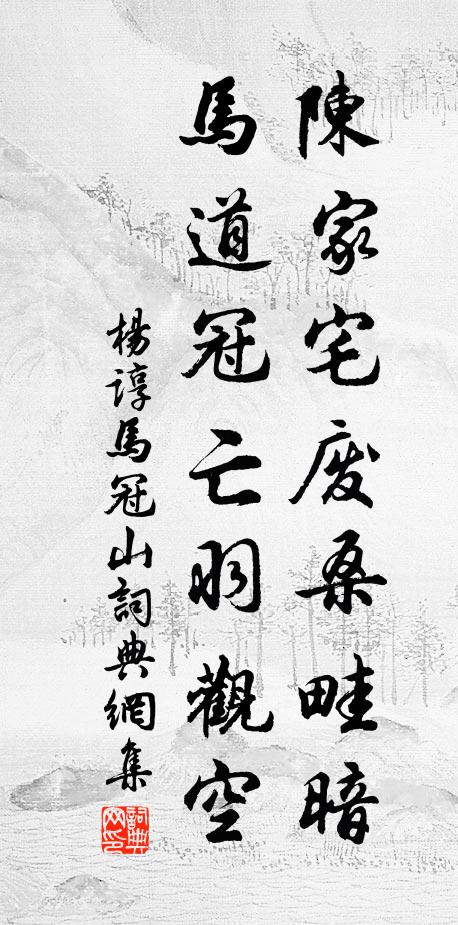 陳家宅废桑畦暗
馬道冠亡羽觀空
楊諄馬冠山詞典網集
詞典网印